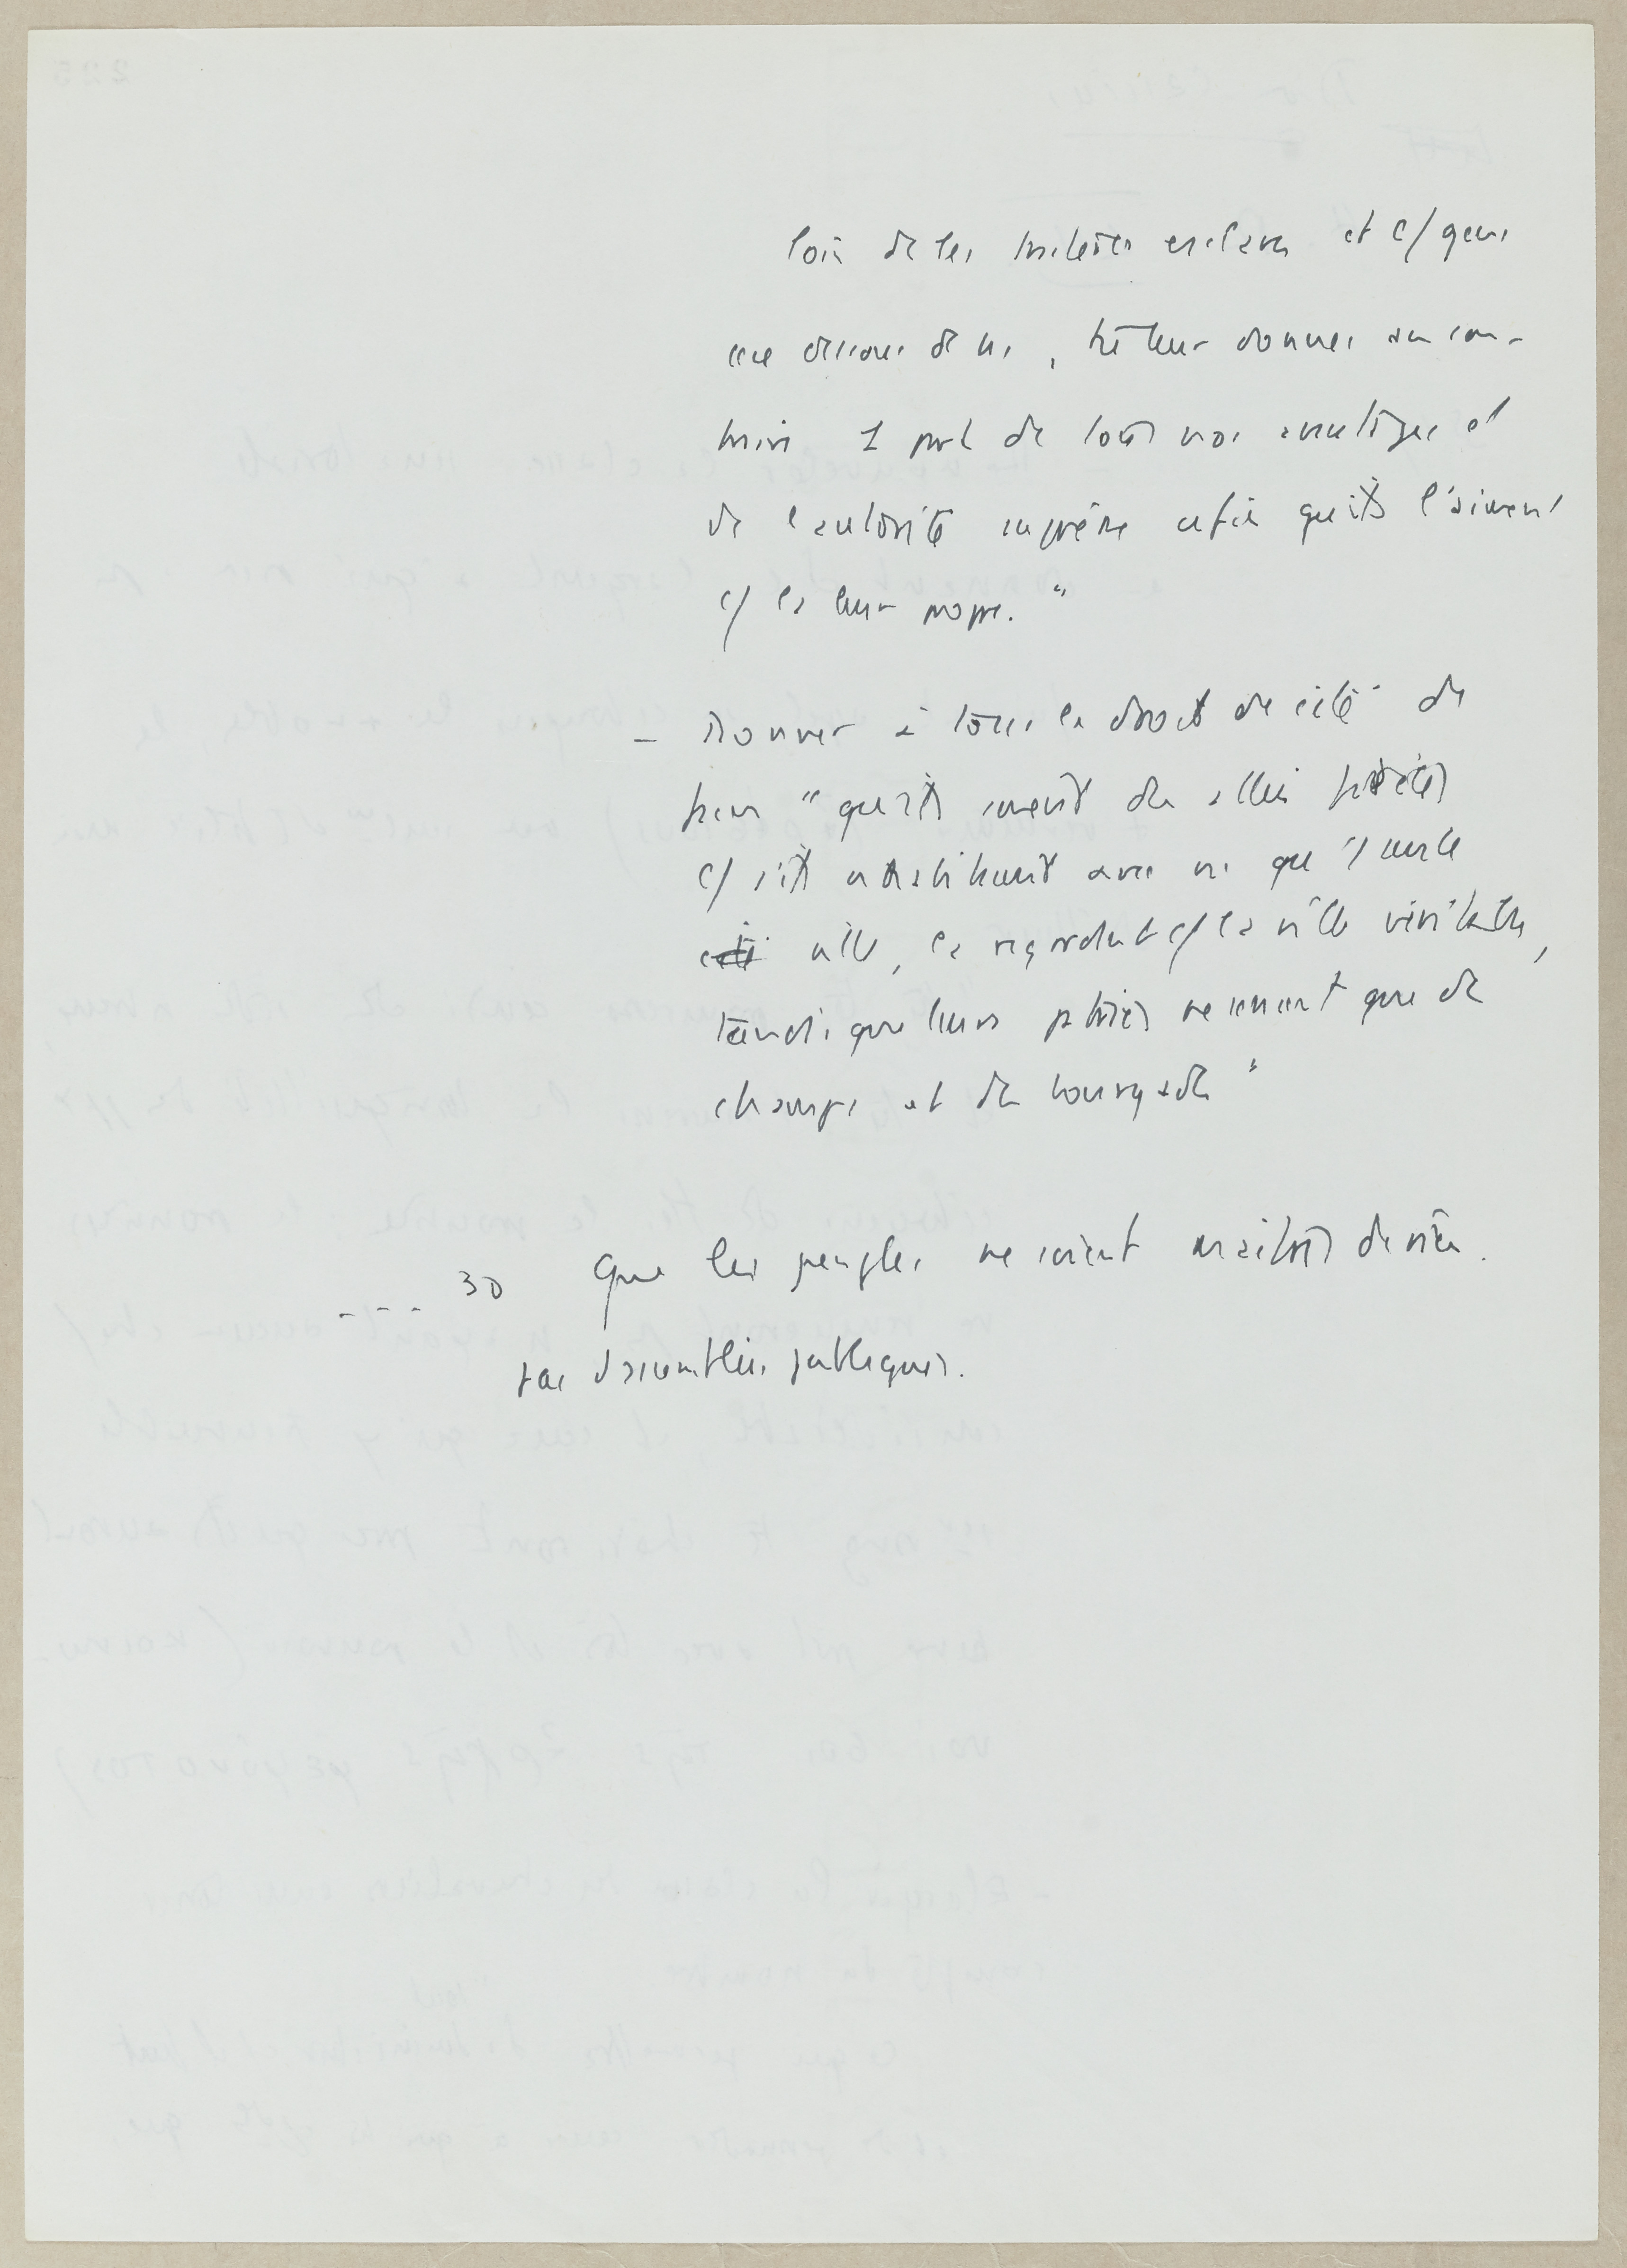 loin de les traiter en esclaves et c/ gens
au dessous de ns, il leur donner au con-
traire 1 part de tous nos avantages et
de l'autorité suprême afin qu'ils l'aiment
c/ la leur propre."
— Donner à tous le droit de cité de
façon "qu'ils soient des alliés fidèles
c/ s'ils n'habitaient avec ns qu'1 seule
ville, la regardant c/ la ville véritable,
tandis que leurs patries ne seraient que des
champs et des bourgades"
--- 30 Que les peuples ne soient maîtres de rien.
Pas d'assemblées publiques.